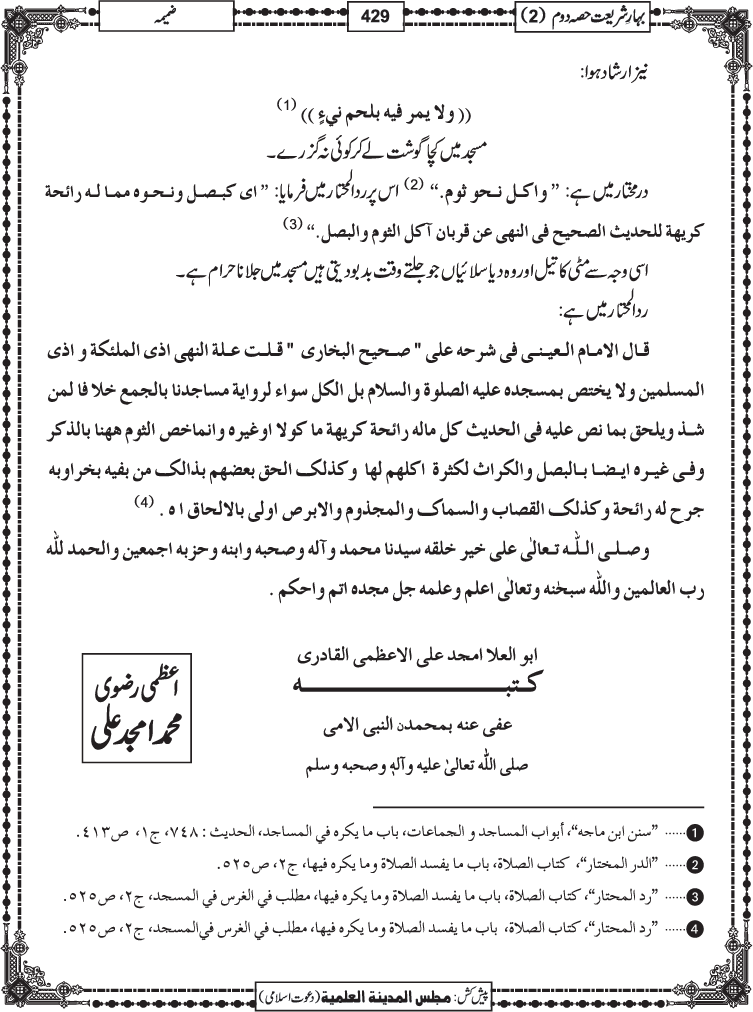 بہارِ شریعت حصہ دوم (2)
429
ضمیمہ
نیز ارشاد ہوا:
(( ولا يمر فيه بلحم نيءٍ )) (1)
مسجد میں کچا گوشت لے کر کوئی نہ گزرے۔
درمختار میں ہے: ” واكل نحو ثوم.“ (2) اس پر ردالمحتار میں فرمایا: ” ای كبصل ونحوه مما له رائحة
كريهة للحديث الصحيح فی النهی عن قربان آكل الثوم والبصل.“ (3)
اسی وجہ سے مٹی کا تیل اور وہ دیا سلائیاں جو جلتے وقت بدبو دیتی ہیں مسجد میں جلانا حرام ہے۔
ردالمحتار میں ہے:
قال الامام العينی فی شرحه علی " صحيح البخاری " قلت علة النهی اذی الملئكة و اذی
المسلمين ولا يختص بمسجده عليه الصلوة والسلام بل الكل سواء لرواية مساجدنا بالجمع خلا فا لمن
شذ ويلحق بما نص عليه فی الحديث كل ماله رائحة كريهة ما كولا اوغيره وانماخص الثوم ههنا بالذكر
وفی غيره ايضا بالبصل والكراث لكثرة اكلهم لها وكذلك الحق بعضهم بذالك من بفيه بخراوبه
جرح له رائحة وكذلك القصاب والسماك والمجذوم والابرص اولی بالالحاق ا ه . (4)
وصلی اللّٰه تعالیٰ علی خير خلقه سيدنا محمد وآله وصحبه وابنه وحزبه اجمعين والحمد للّٰه
رب العالمين واللّٰه سبحٰنه وتعالیٰ اعلم وعلمه جل مجده اتم واحكم .
ابو العلا امجد علی الاعظمی القادری
كتبــــــــــــه
عفی عنه بمحمدن النبی الامی
صلی اللّٰه تعالیٰ عليه وآلهٖ وصحبه وسلم
اعظمی رضوی
محمد امجد علی
1 ...... ”سنن ابن ماجه“، أبواب المساجد و الجماعات، باب ما يكره في المساجد، الحديث : ٧٤٨، ج١، ص٤١٣.
2 ...... ”الدر المختار“، كتاب الصلاة، باب ما يفسد الصلاة وما يكره فيها، ج٢، ص٥٢٥.
3 ...... ”رد المحتار“، كتاب الصلاة، باب ما يفسد الصلاة وما يكره فيها، مطلب في الغرس في المسجد، ج٢، ص٥٢٥.
4 ...... ”رد المحتار“، كتاب الصلاة، باب ما يفسد الصلاة وما يكره فيها، مطلب في الغرس في المسجد، ج٢، ص٥٢٥.
پیش کش: مجلس المدينة العلمية (دعوت اسلامی)